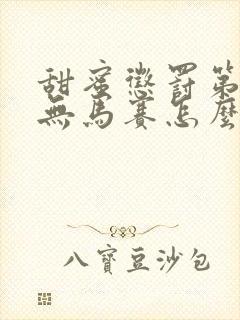 甜蜜懲罰第
無馬賽怎麼
八寶豆沙包